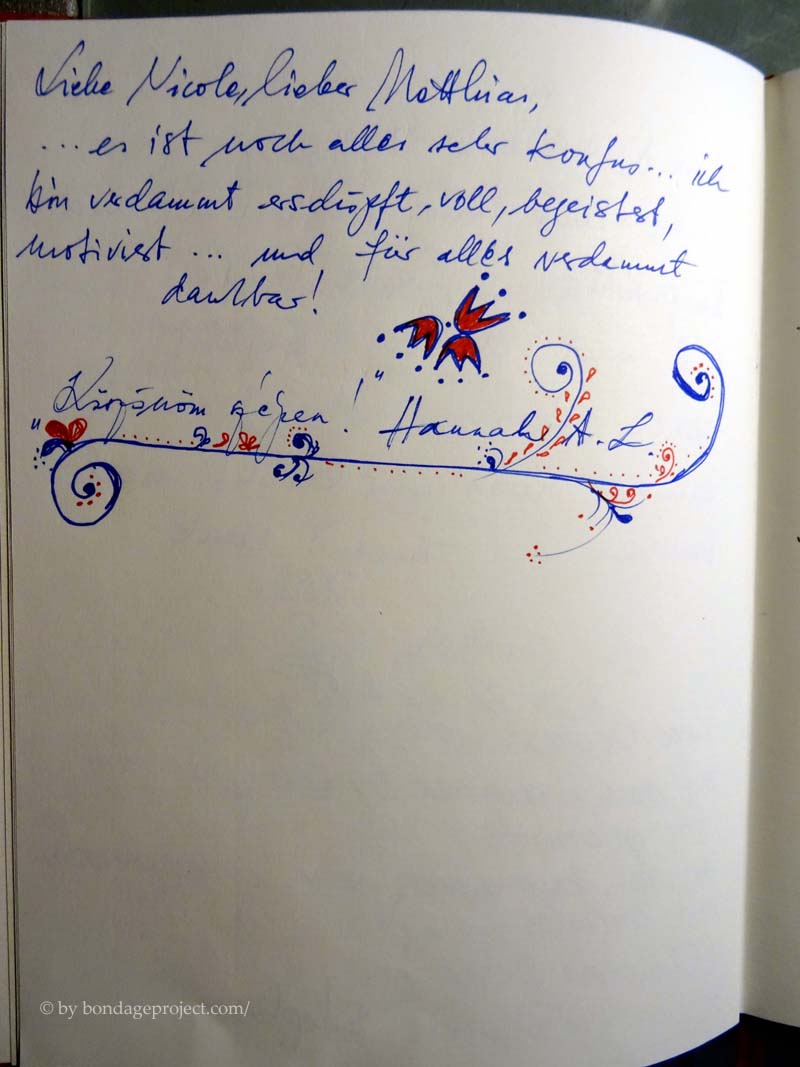 Liebe Nicole, lieber Matthias,
... es ist noch alles sehr konfus... ich
bin verdammt erschöpft, voll, begeistert,
motiviert ... und für alles verdammt
dankbar!
"Köszönöm szépen!" Hannah A. L.
© by bondageproject.com/